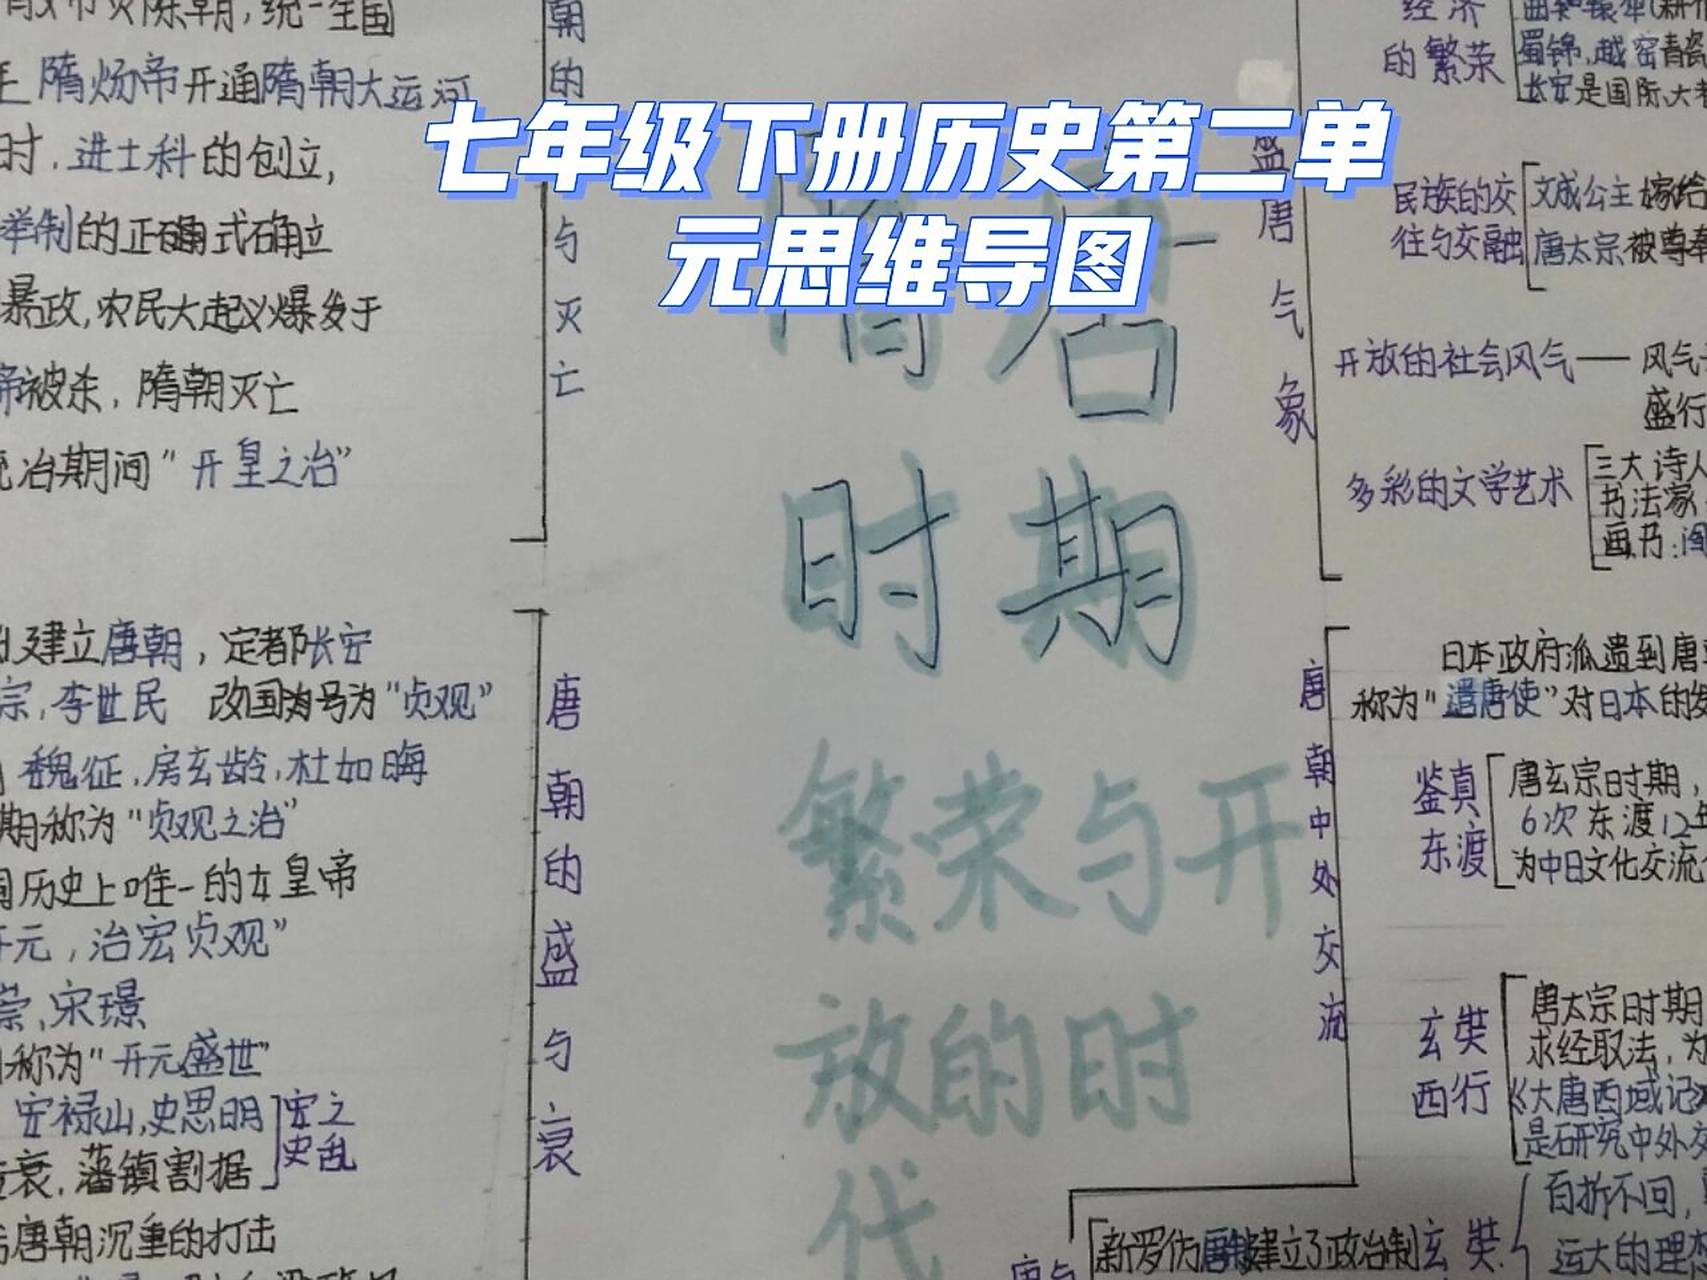 七年级下册历史第二单
元思维导图
隋唐
时期
繁荣与开
放的时
代
朝的
与灭亡
统一全国
隋炀帝开通隋朝大运河
时，进士科的创立，
举制的正确式确立
暴政，农民大起义爆发于
帝被杀，隋朝灭亡
统治期间“开皇之治”
唐朝的盛与衰
建立唐朝，定都长安
宗，李世民 改国为号为“贞观”
魏征，房玄龄，杜如晦
期称为“贞观之治”
国历史上唯一的女皇帝
开元，治宏贞观”
崇，宋璟
称为“开元盛世”
安禄山，史思明
安之
史乱
衰，藩镇割据
唐朝沉重的打击
盛唐气象
经济
的繁荣
蜀锦，越窑青瓷
长安是国际大
民族的交
往与交融
文成公主嫁给
唐太宗被尊奉
开放的社会风气——风气
盛行
多彩的文学艺术
三大诗人
书法家
画乃：阎
唐朝中外交流
日本政府派遣到唐
称为“遣唐使”对日本的
鉴真
东渡
唐玄宗时期，
6次东渡12年
为中日文化交流
玄奘
西行
唐太宗时期
求经取法，为
《大唐西域记
是研究中外交
唐与
新罗仿唐建立了政治制
玄奘
百折不回，
远大的理想